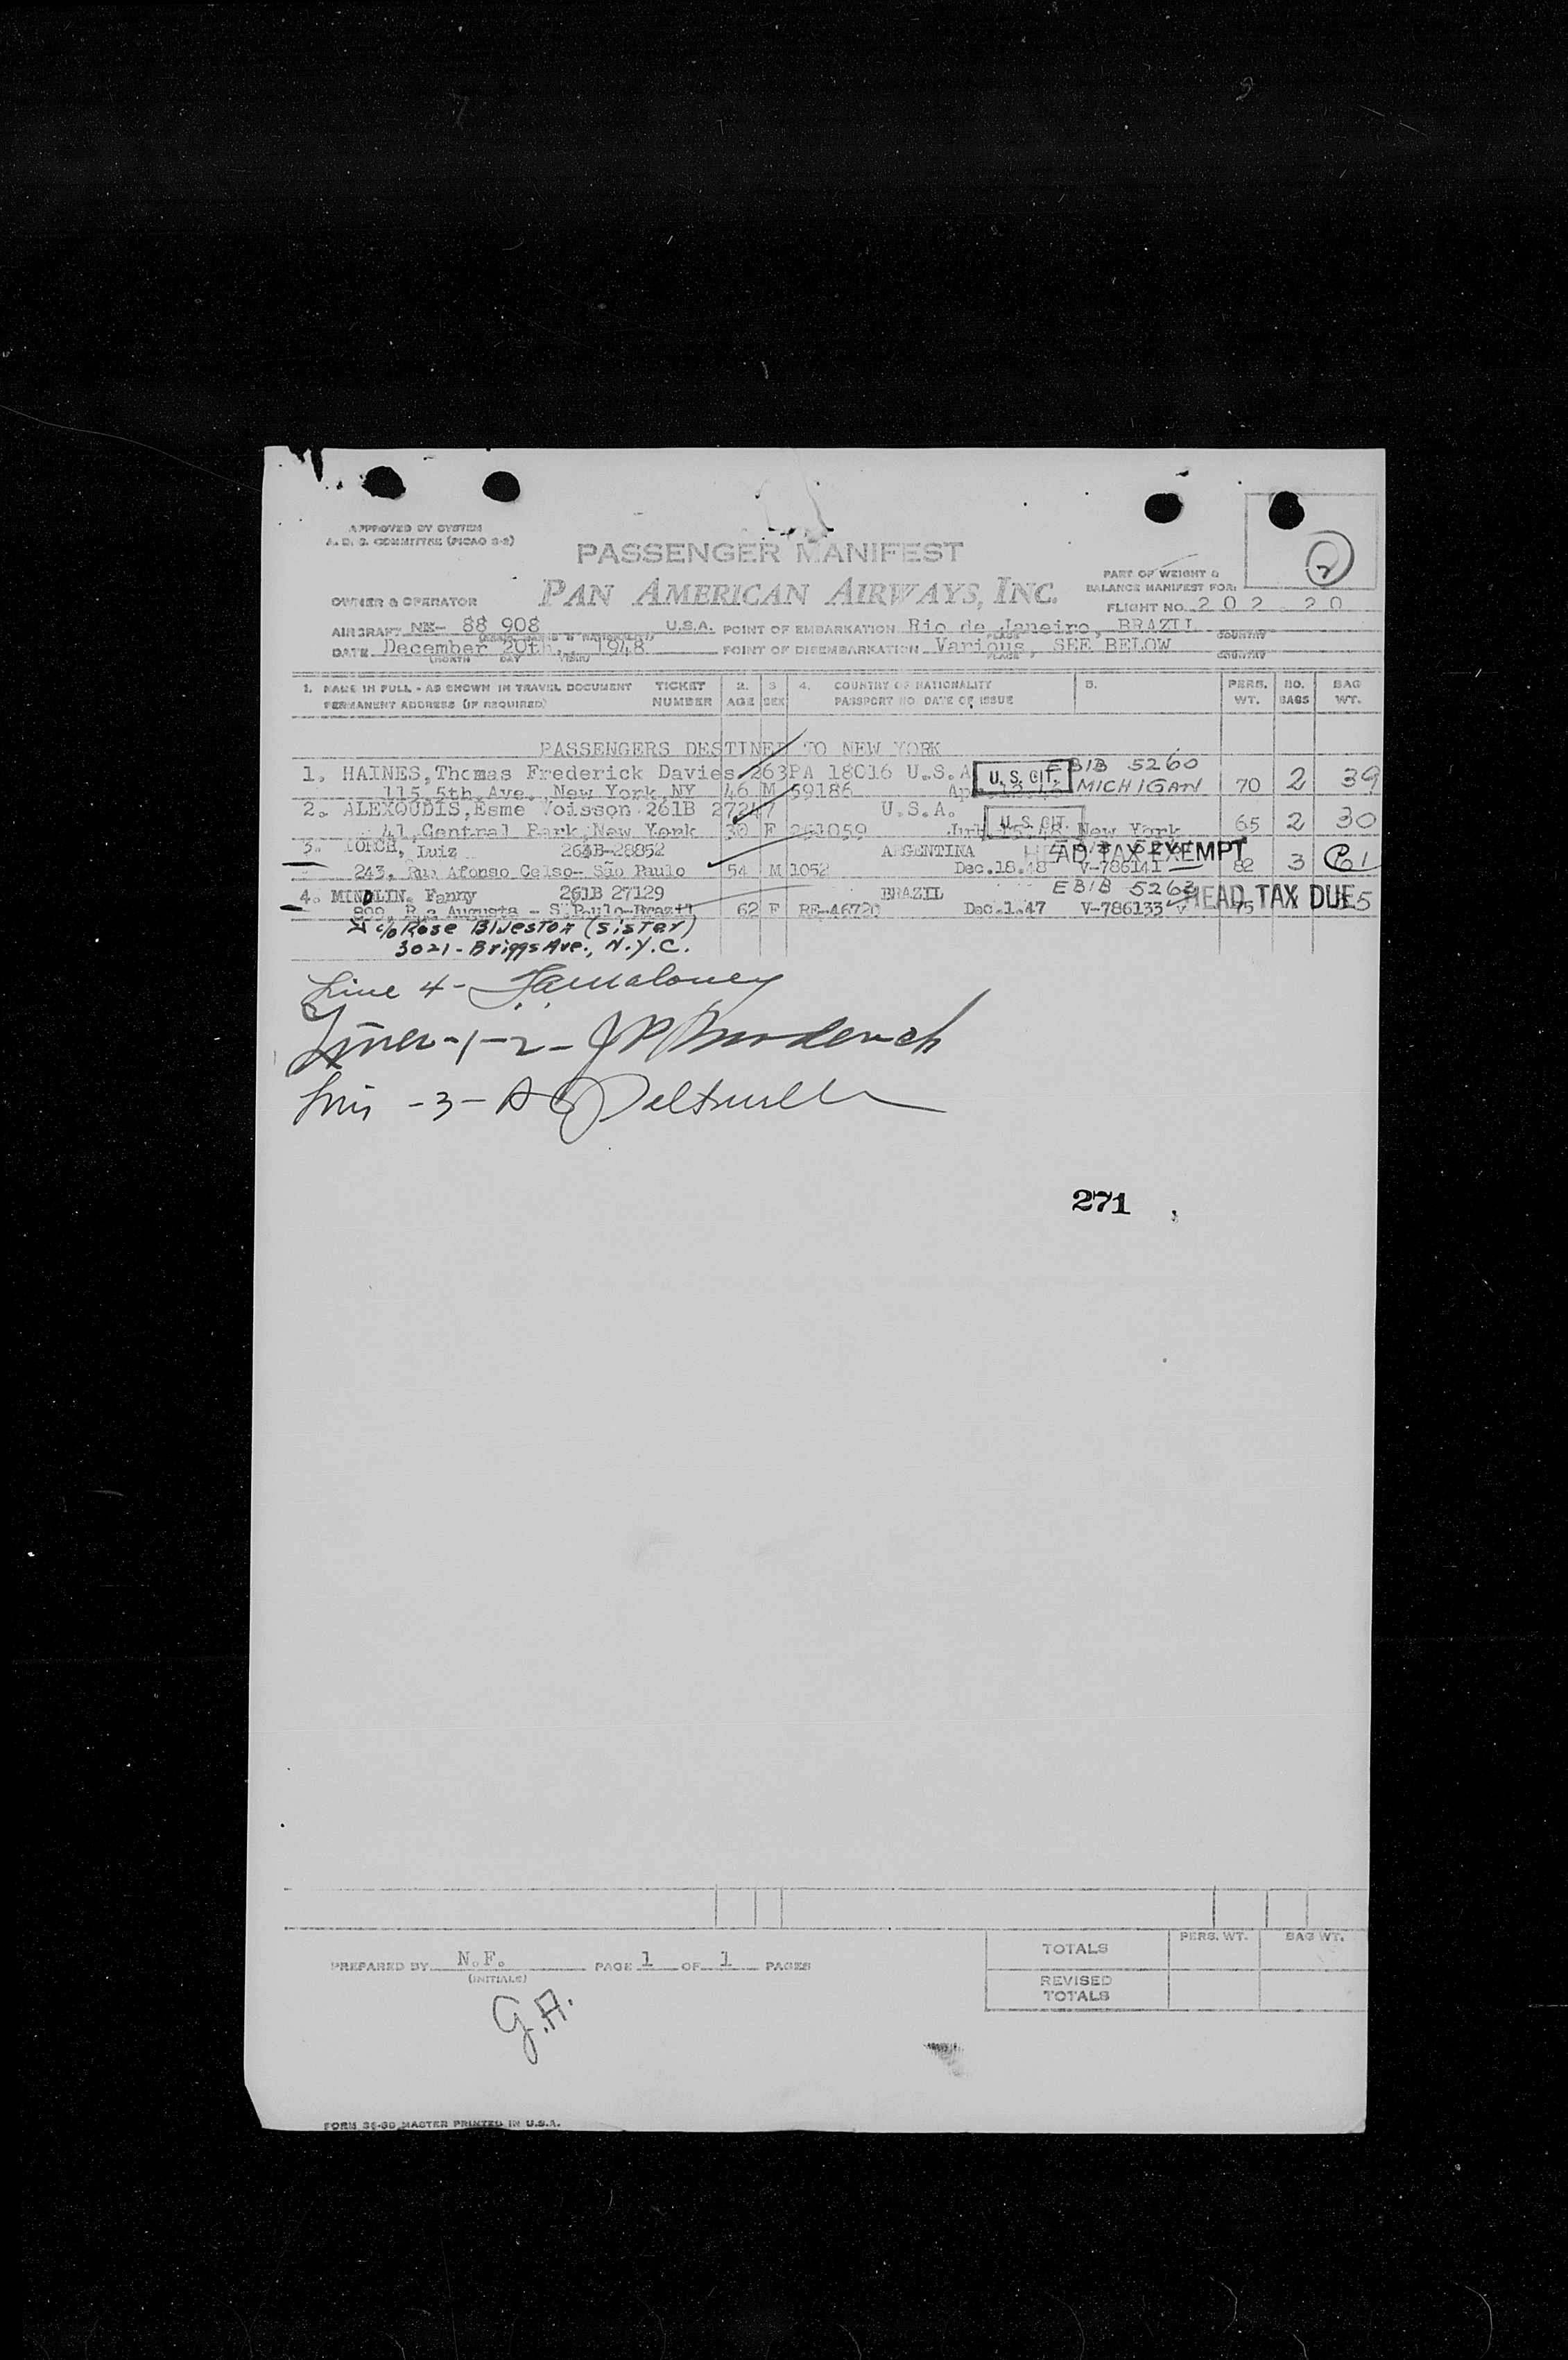 APPROVED BY SYSTEM
A. D. S. COMMITTEE (PICAO S-2)
2
PASSENGER MANIFEST
PAN AMERICAN AIRWAYS, INC.
PART OF WEIGHT &
BALANCE MANIFEST FOR:
FLIGHT NO. 202 - 20
OWNER & OPERATOR
AIRCRAFT 88 908 U.S.A. POINT OF EMBARKATION Rio de Janeiro, BRAZIL
PLACE COUNTRY
DATE December 20th, 1948 POINT OF DISEMBARKATION Various, SEE BELOW
MONTH DAY YEAR PLACE COUNTRY
1. NAME IN FULL - AS SHOWN IN TRAVEL DOCUMENT TICKET 2. 3 4. COUNTRY OF NATIONALITY 5. PERS. NO. BAG
PERMANENT ADDRESS (IF REQUIRED) NUMBER AGE SEX PASSPORT NO DATE OF ISSUE WT. BAGS WT.
PASSENGERS DESTINED TO NEW YORK
1. HAINES, Thomas Frederick Davies 263PA 18016 U.S.A. U.S. CIT. EBIB 5260
115, 5th. Ave. New York, NY 46 M 59186 MICHIGAN 70 2 39
2. ALEXOUDIS, Esme Voisson 261B 27247 U.S.A. U.S. CIT.
41, Central Park, New York 30 F 261059 New York 65 2 30
3. Luiz 264B-28852 ARGENTINA HEAD TAX EXEMPT
243, Rua Afonso Celso- São Paulo 54 M 1052 Dec.18.48 V-786141 82 3 61
4. MINDLIN, Fanny 261B 27129 BRAZIL EBIB 5262 HEAD TAX DUE
899, R. Augusta - S.Paulo-Brazil 62 F RE-46720 Dec.1.47 V-786133 V 75
c/o Rose Blueston (sister)
3021 - Briggs Ave., N.Y.C.
Line 4 -
Lines - 1 - 2 -
- 3 -
271
PREPARED BY N.F. PAGE 1 OF 1 PAGES
(INITIALS)
G.A.
PERS. WT. BAG WT.
TOTALS
REVISED
TOTALS
FORM MASTER PRINTED IN U.S.A.